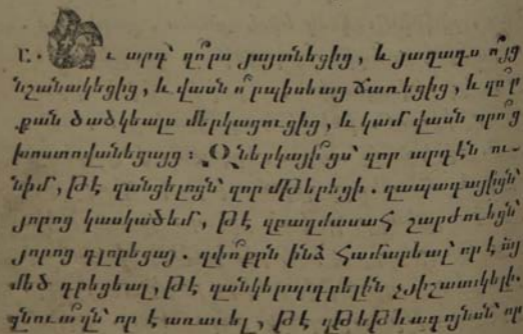 Բ. Եւ արդ՝ զո՞րս յայտնեցից, և յաղագս ո՞յց
նշանակեցից, և վասն ո՞րպիսեաց ճառեցից, և զո՞ր
քան ծածկեալս մերկացուցից, և կամ վասն որո՞ց
խոստովանեցայց։ Զներկայի՞ցս՝ զոր արդէն ու-
նիմ, թէ զանցելոցն՝ զոր մթերեցի. զապագայիցն՝
յորոց կասկածեմ, թէ զբազմասահ շարժուեցն՝
յորոց գլորեցայ. զփո՞քրն ինձ համարեալ՝ որ է այ
մեծ գրեցեալ, թէ զանկերպագրելին չյիշատակելի.
զնուա՞զն՝ որ է առաւել, թէ զթեթևագոյնսն՝ որ